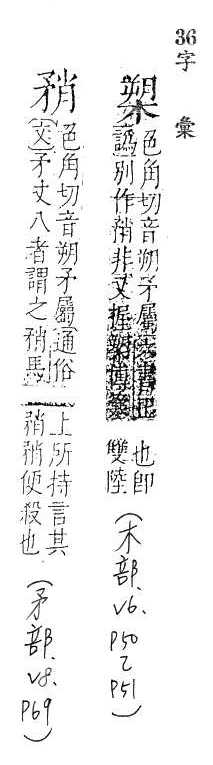 36字彙
槊
色角切音朔矛屬六書正
譌別作矟非又握槊博
也即
雙陸
(木部.v6.P50乙P51)
矟
色角切音朔矛屬通俗
文矛丈八者謂之矟馬
上所持言其
矟矟便殺也
(矛部.v8.P69)